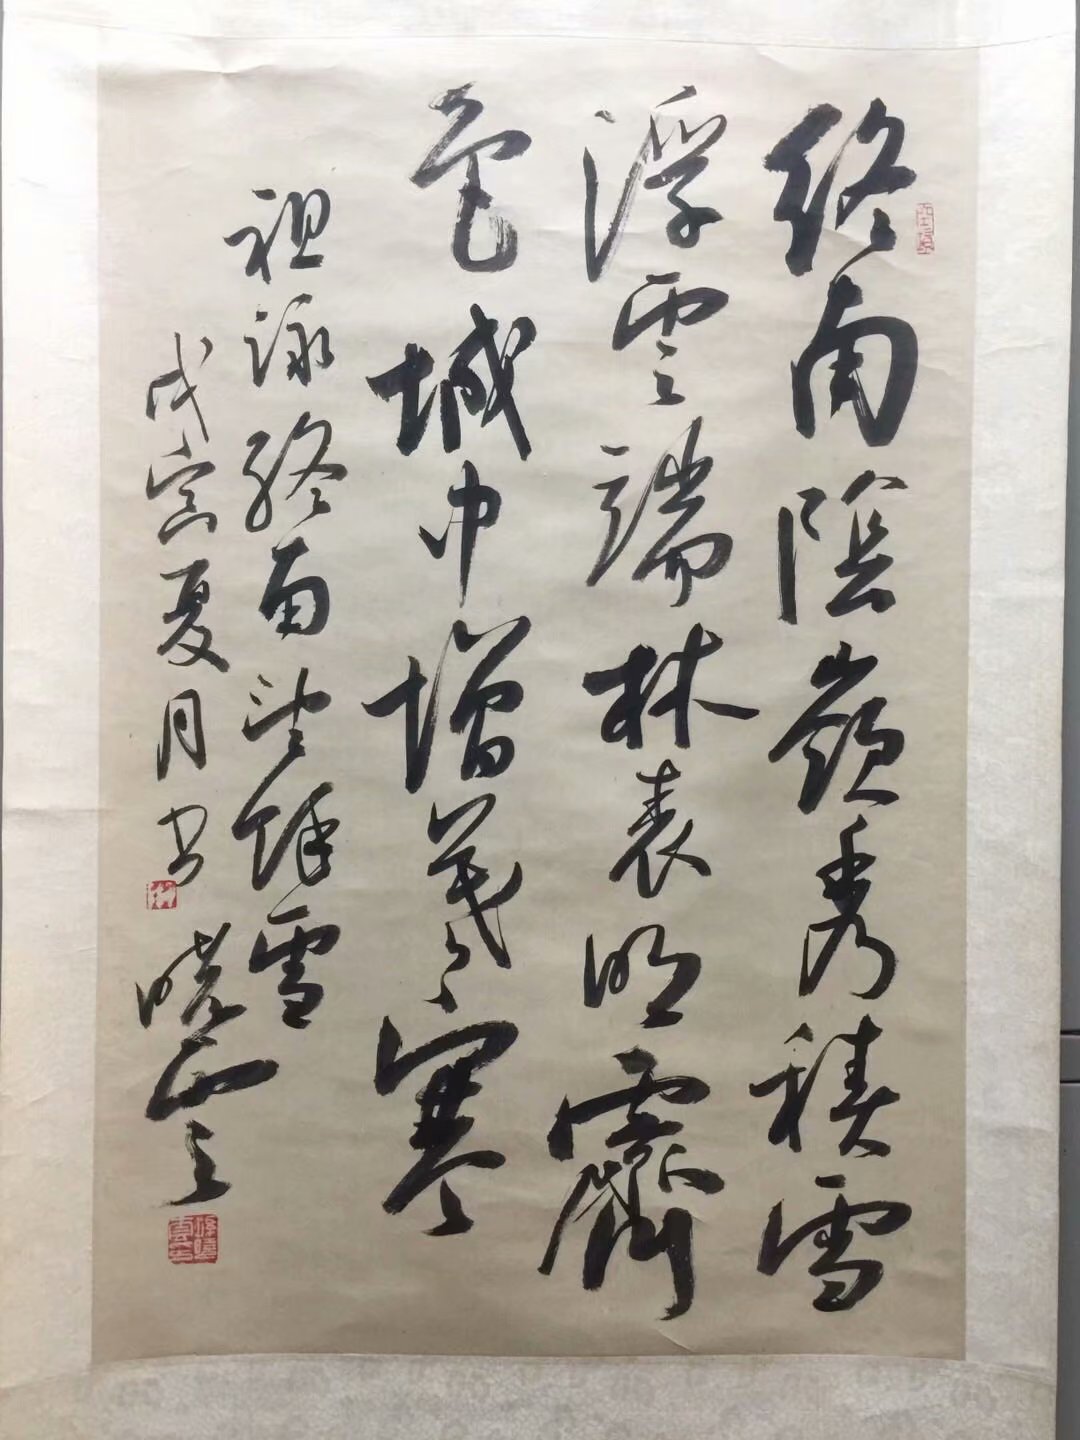 終南陰嶺秀積雪
浮雲端林表明霽
色城中增暮寒
祖詠終南望餘雪
戊寅夏月書 曉雲